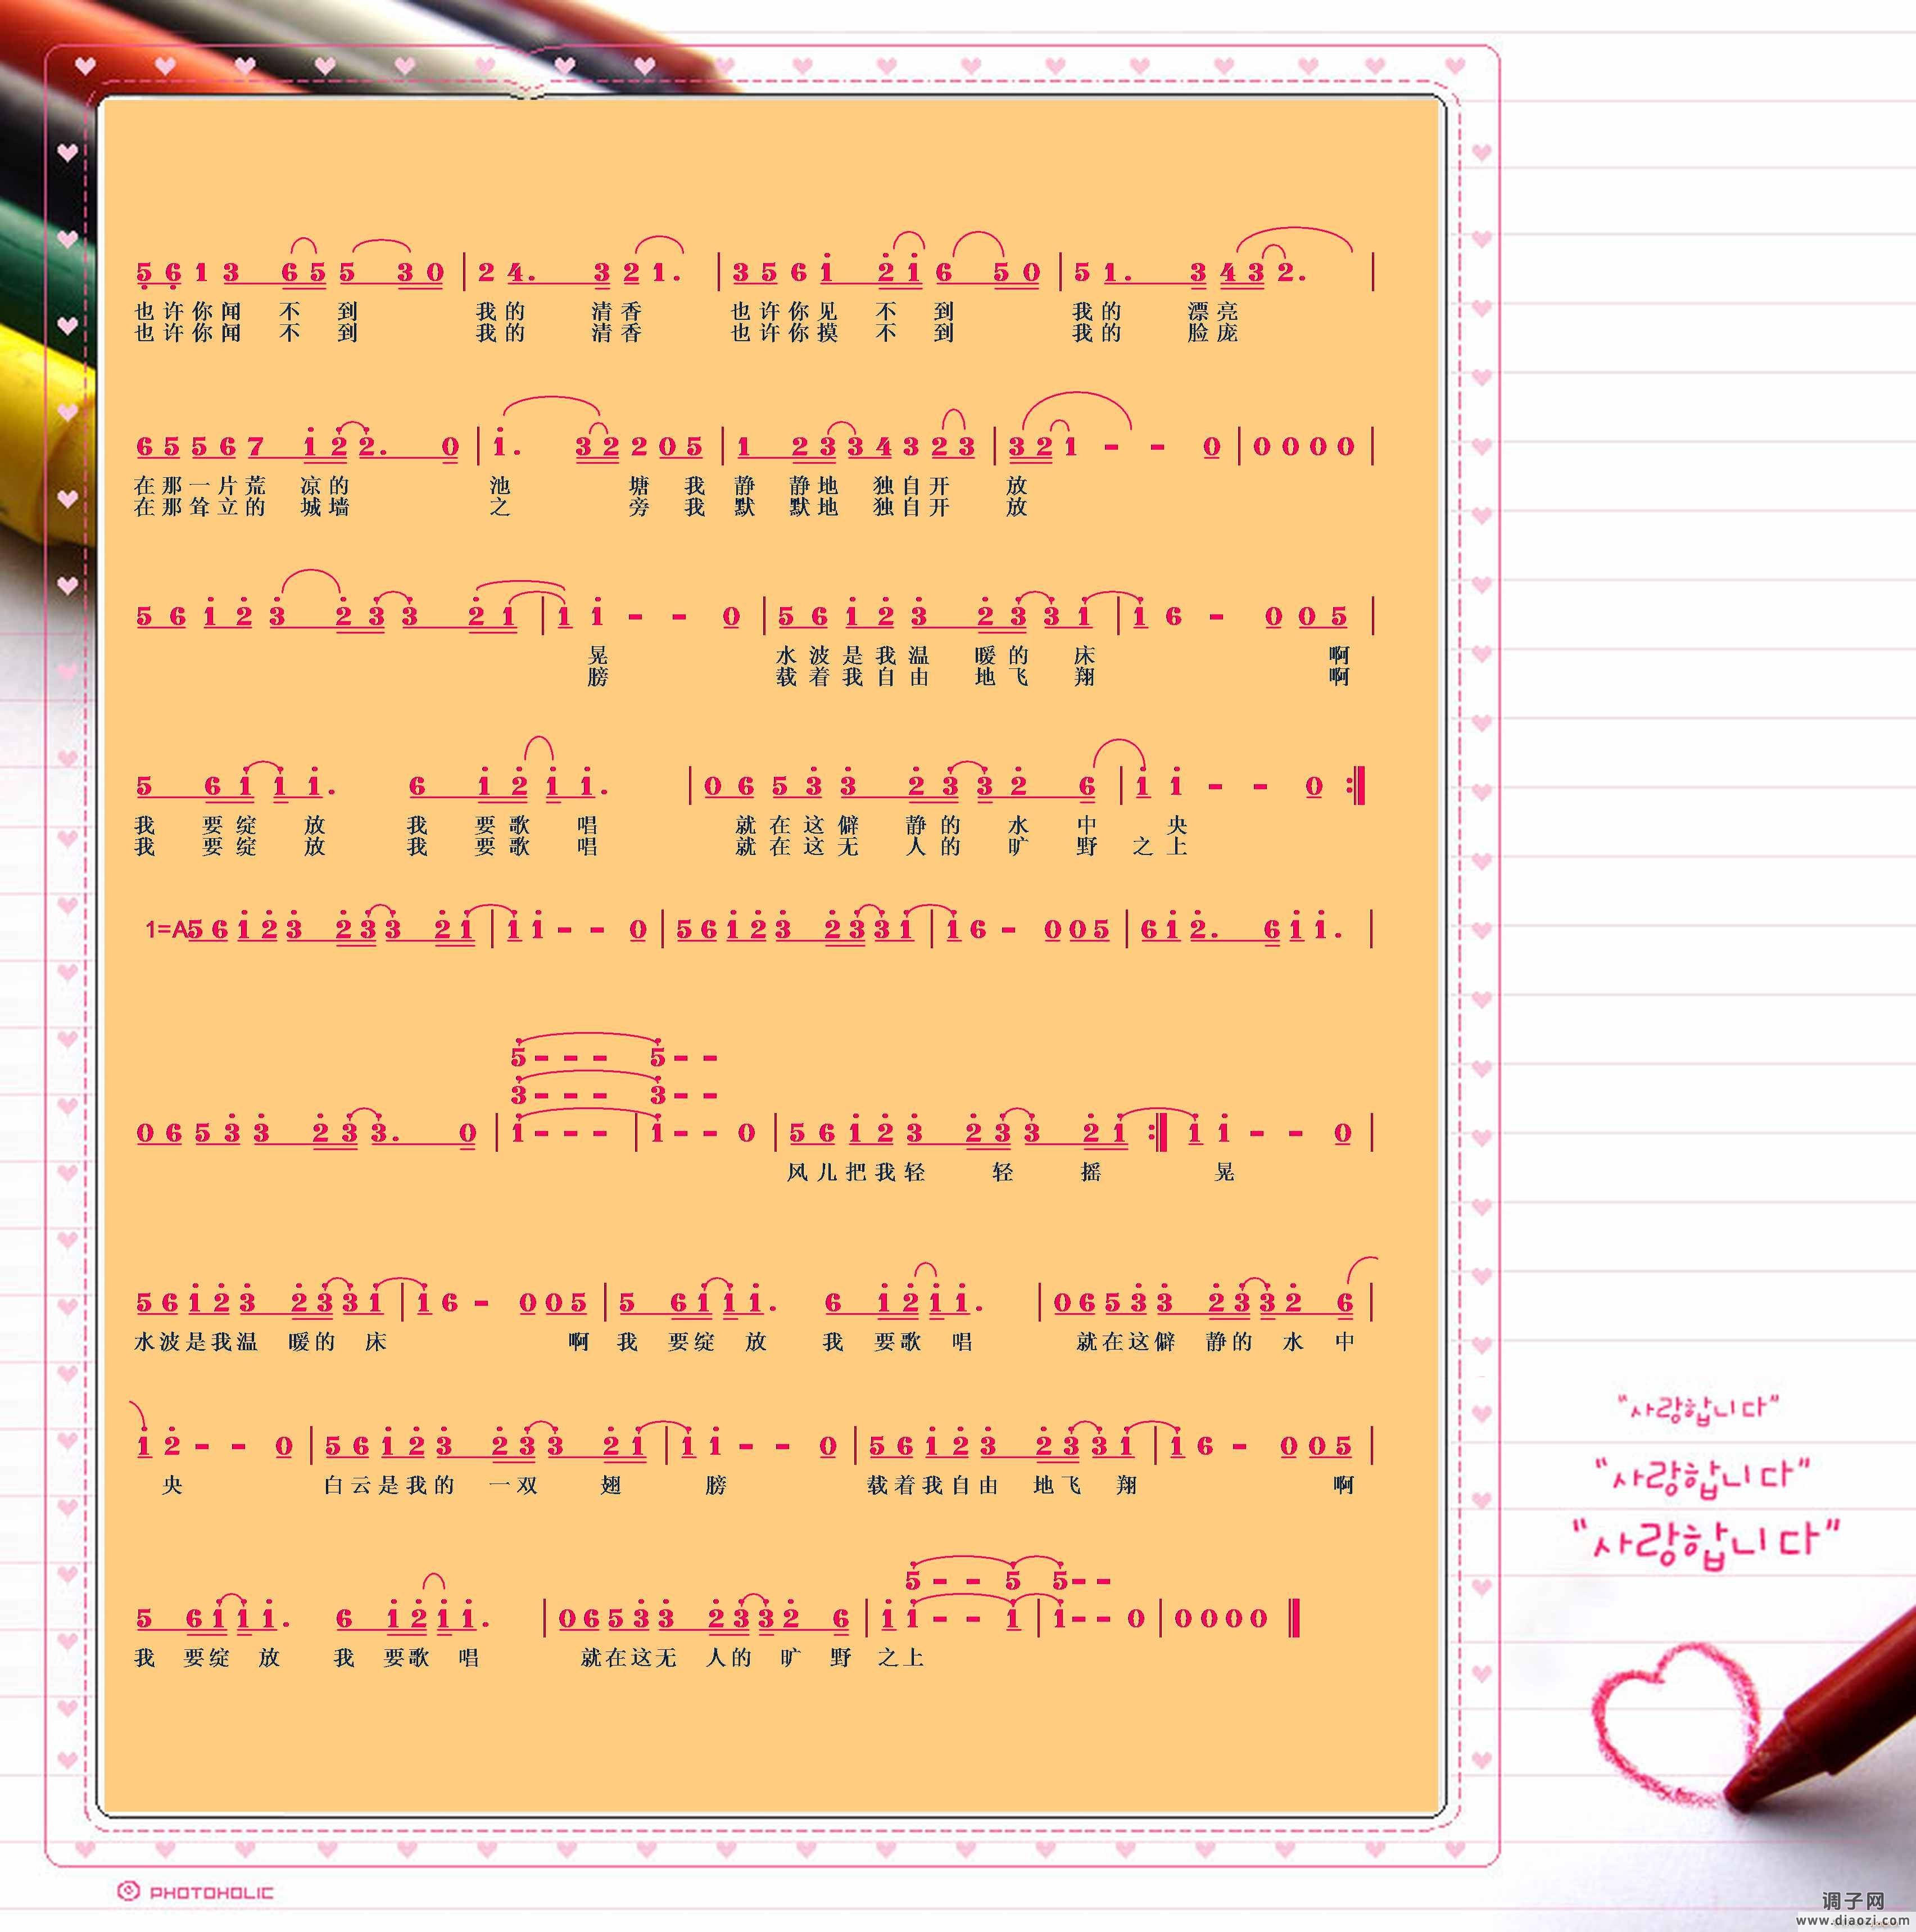 5 6 1 3 6 5 5 3 0 | 2 4. 3 2 1. | 3 5 6 1 2 1 6 5 0 | 5 1. 3 4 3 2. |
也许你闻 不 到 我的 清香 也许你见 不 到 我的 漂亮
也许你闻 不 到 我的 清香 也许你摸 不 到 我的 脸庞
6 5 5 6 7 1 2 2. 0 | 1. 3 2 2 0 5 | 1 2 3 3 4 3 2 3 | 3 2 1 - - 0 | 0 0 0 0 |
在那一片荒 凉的 池 塘 我 静 静地 独自开 放
在那耸立的 城墙 之 旁 我 默 默地 独自开 放
5 6 1 2 3 2 3 3 2 1 | 1 1 - - 0 | 5 6 1 2 3 2 3 3 1 | 1 6 - 0 0 5 |
晃 水波是我温 暖的 床 啊
膀 载着我自由 地飞 翔 啊
5 6 1 1 1. 6 1 2 1 1. | 0 6 5 3 3 2 3 3 2 6 | 1 1 - - 0 :|
我 要绽 放 我 要歌 唱 就在这僻 静的 水 中 央
我 要绽 放 我 要歌 唱 就在这无 人的 旷 野 之上
1=A 5 6 1 2 3 2 3 3 2 1 | 1 1 - - 0 | 5 6 1 2 3 2 3 3 1 | 1 6 - 0 0 5 | 6 1 2. 6 1 1. |
5 - - - 5 - -
3 - - - 3 - -
0 6 5 3 3 2 3 3. 0 | 1 - - - | 1 - - 0 | 5 6 1 2 3 2 3 3 2 1 :| 1 1 - - 0 |
风儿把我轻 轻 摇 晃
5 6 1 2 3 2 3 3 1 | 1 6 - 0 0 5 | 5 6 1 1 1. 6 1 2 1 1. | 0 6 5 3 3 2 3 3 2 6 |
水波是我温 暖的 床 啊 我 要绽 放 我 要歌 唱 就在这僻 静的 水 中
1 2 - - 0 | 5 6 1 2 3 2 3 3 2 1 | 1 1 - - 0 | 5 6 1 2 3 2 3 3 1 | 1 6 - 0 0 5 |
央 白云是我的 一双 翅 膀 载着我自由 地飞 翔 啊
5 - - 5 5 - -
5 6 1 1 1. 6 1 2 1 1. | 0 6 5 3 3 2 3 3 2 6 | 1 1 - - 1 | 1 - - 0 | 0 0 0 0 ||
我 要绽 放 我 要歌 唱 就在这无 人的 旷 野 之上
"사랑합니다"
"사랑합니다"
"사랑합니다"
PHOTOHOLIC
调子网
www.diaozi.com